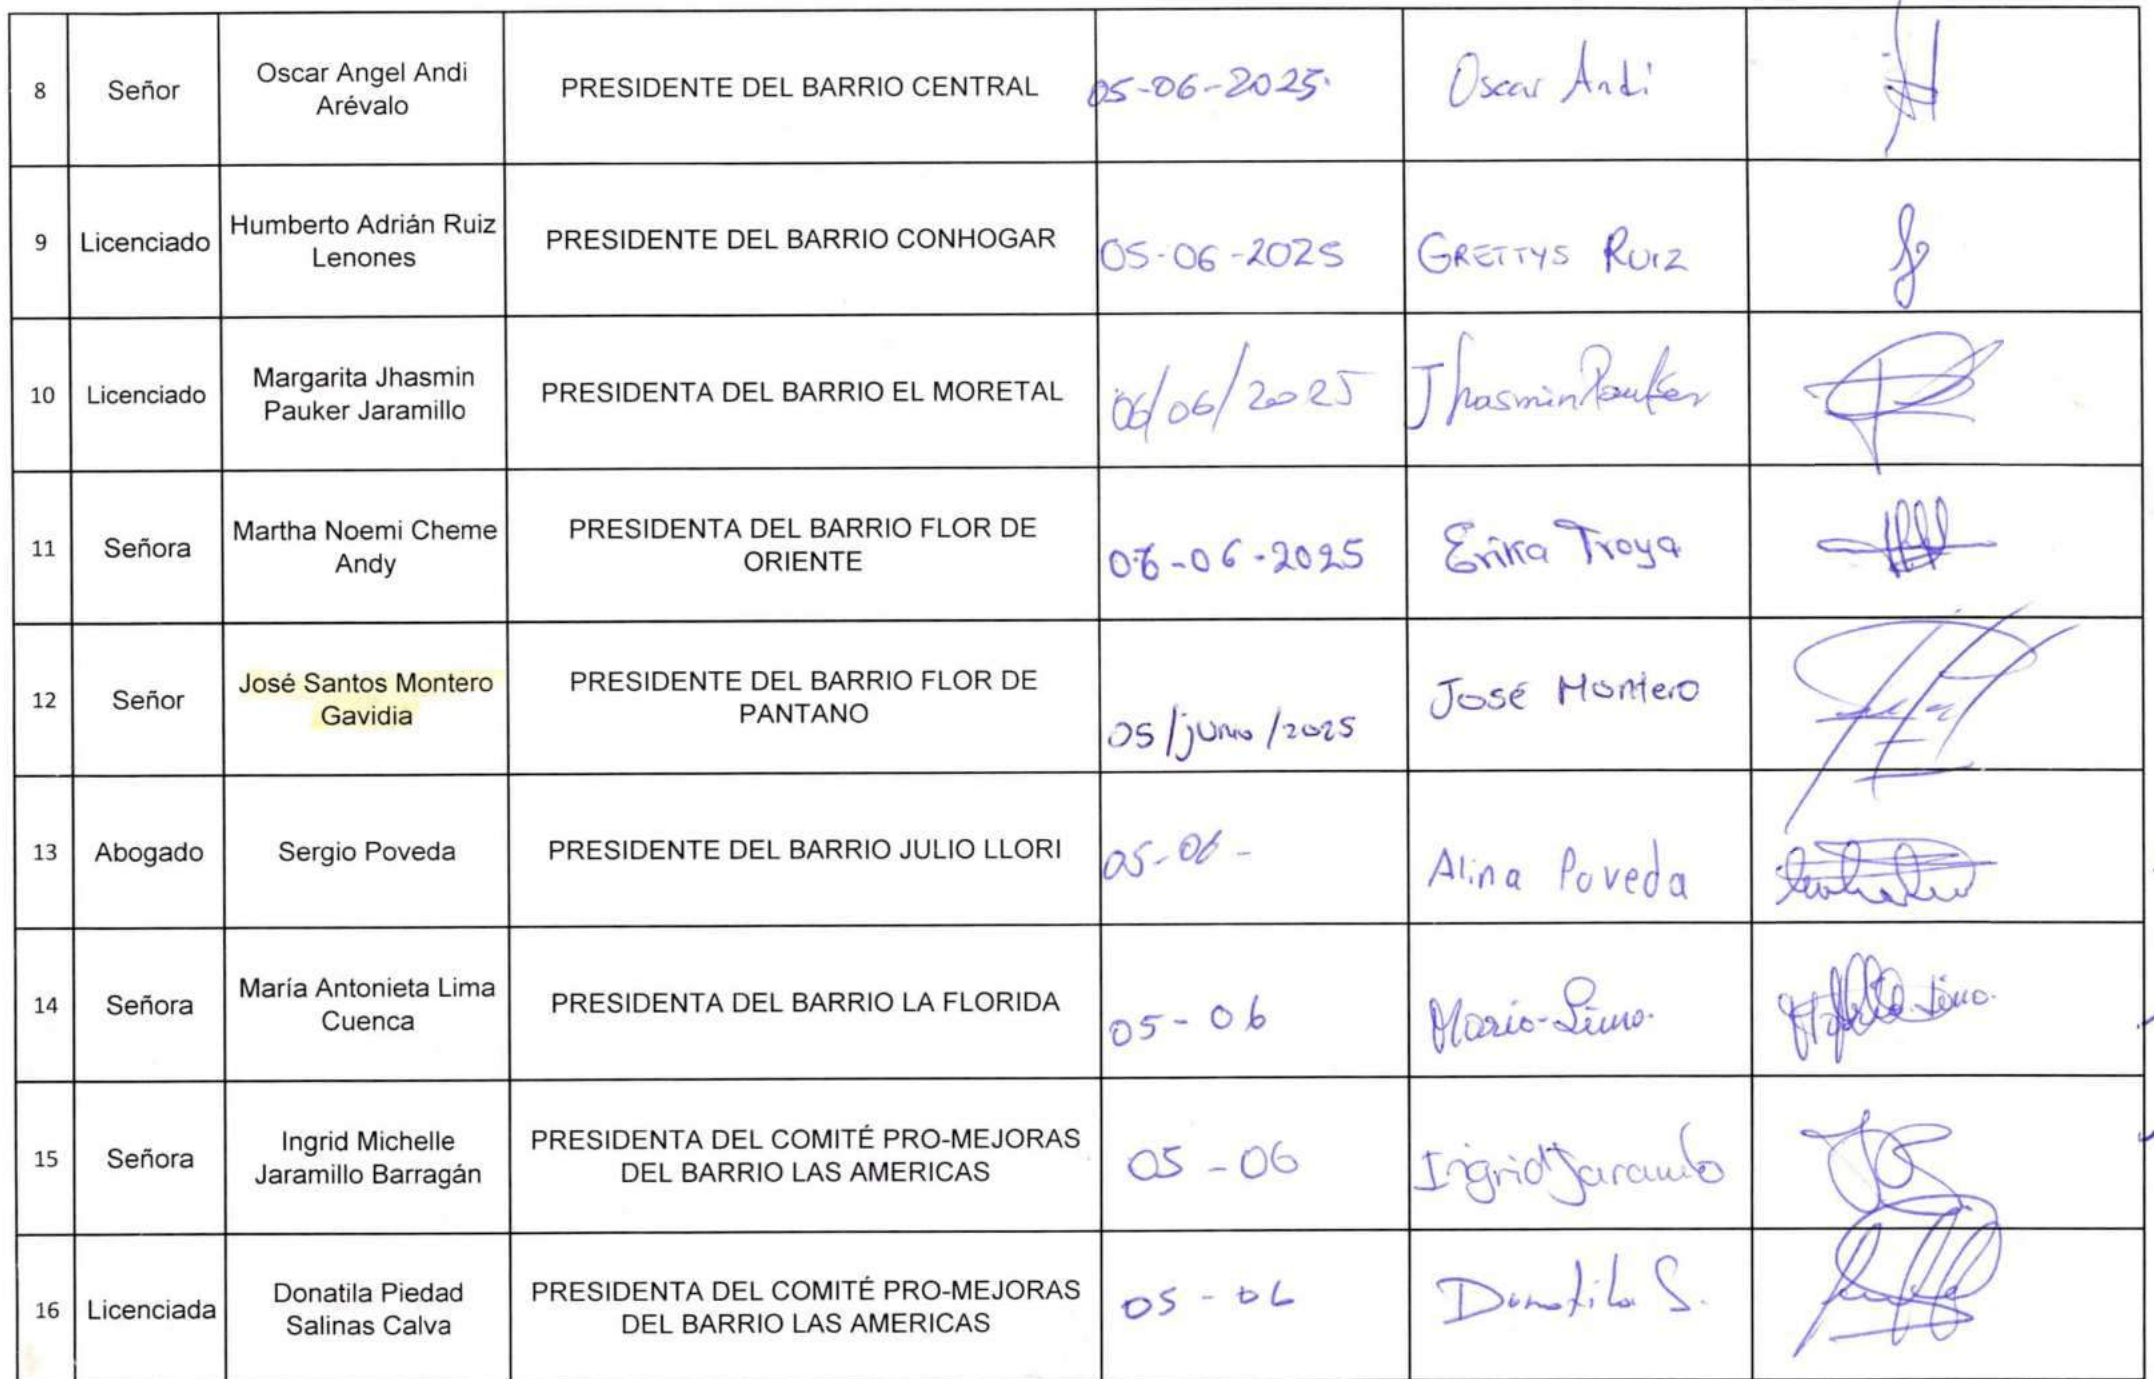 8 Señor Oscar Angel Andi Arévalo PRESIDENTE DEL BARRIO CENTRAL 05-06-2025. Oscar Andi
9 Licenciado Humberto Adrián Ruiz Lenones PRESIDENTE DEL BARRIO CONHOGAR 05-06-2025 GRETTYS RUIZ
10 Licenciado Margarita Jhasmin Pauker Jaramillo PRESIDENTA DEL BARRIO EL MORETAL 06/06/2025 Jhasmin Pauker
11 Señora Martha Noemi Cheme Andy PRESIDENTA DEL BARRIO FLOR DE ORIENTE 06-06-2025 Erika Troya
12 Señor José Santos Montero Gavidia PRESIDENTE DEL BARRIO FLOR DE PANTANO 05/junio/2025 José Montero
13 Abogado Sergio Poveda PRESIDENTE DEL BARRIO JULIO LLORI 05-06- Alina Poveda
14 Señora María Antonieta Lima Cuenca PRESIDENTA DEL BARRIO LA FLORIDA 05-06 María Lima.
15 Señora Ingrid Michelle Jaramillo Barragán PRESIDENTA DEL COMITÉ PRO-MEJORAS DEL BARRIO LAS AMERICAS 05-06 Ingrid Jaramillo
16 Licenciada Donatila Piedad Salinas Calva PRESIDENTA DEL COMITÉ PRO-MEJORAS DEL BARRIO LAS AMERICAS 05-06 Donatila S.